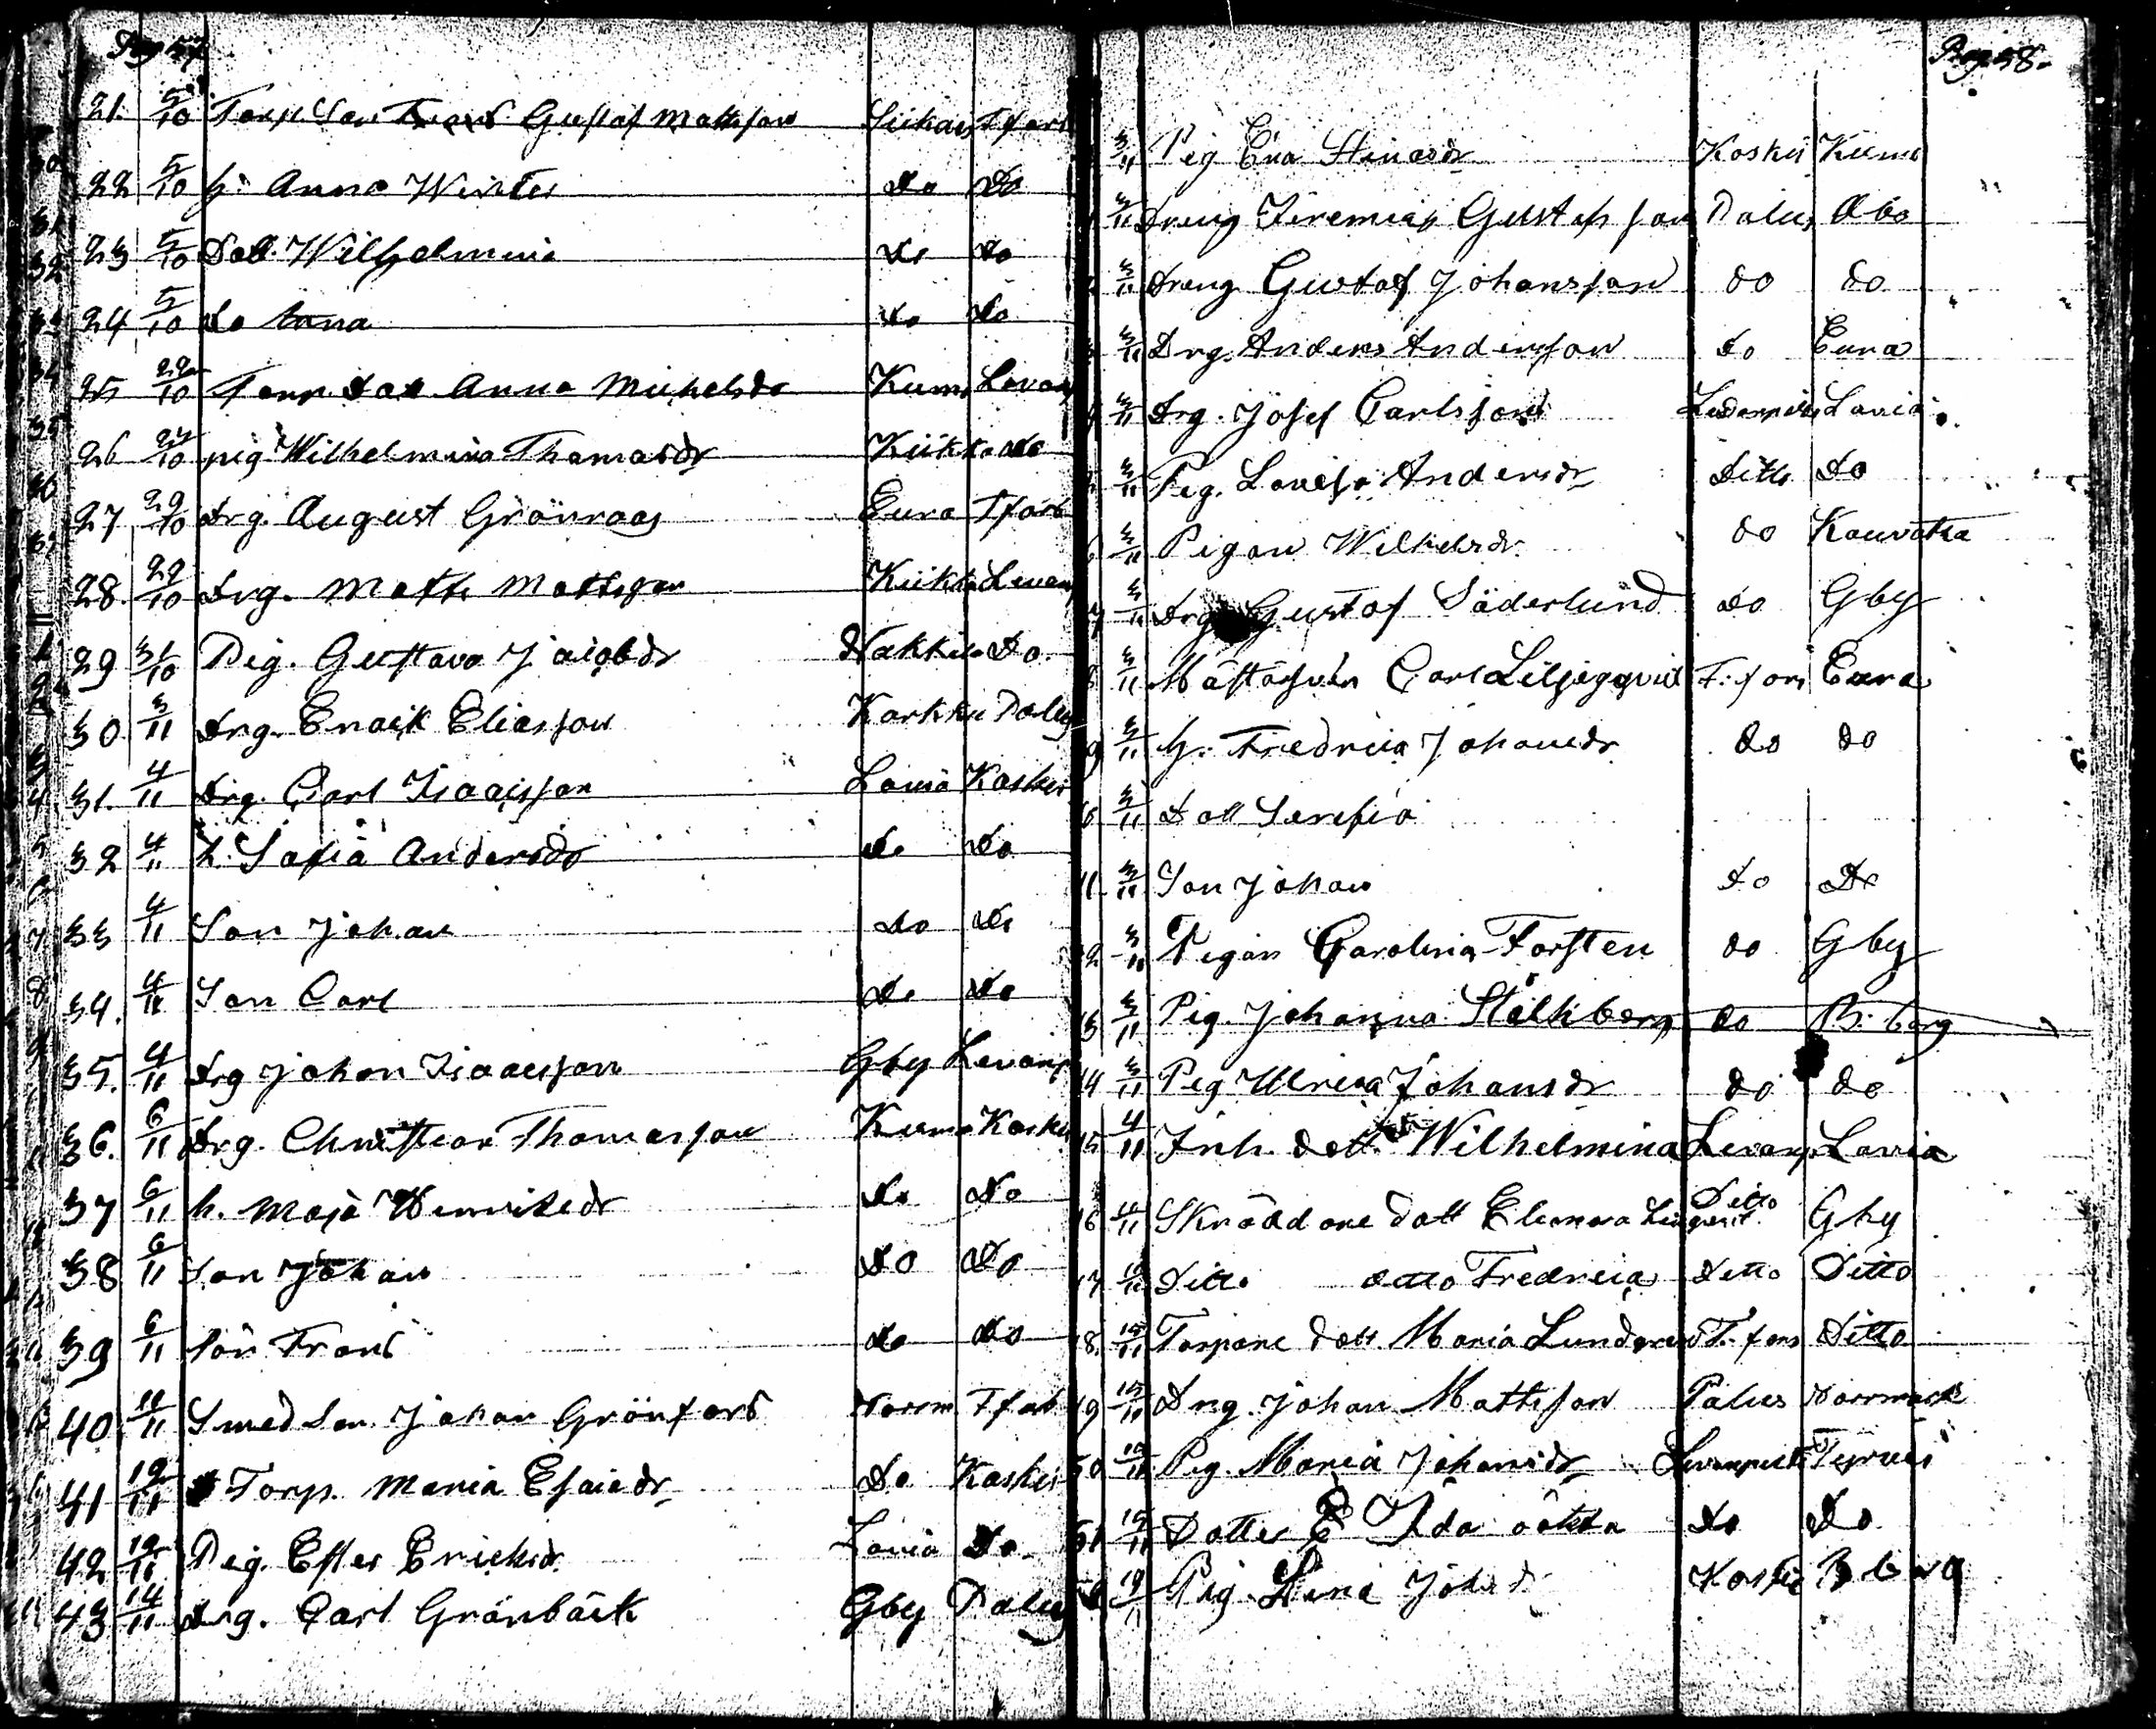 Pag 57
21. 5/10 Torp Son Frans Gustaf Mattsson Siikais Tfors
22 5/10 h: Anna Winter do do
23 5/10 Dott. Wilhelmina do do
24 5/10 do Anna do do
25 22/10 Torp. Dott Anna Michelsdr Kumo Levanp
26 27/10 pig Wilhelmina Thomasdr Kiikka do
27 29/10 Drg. August Grönroos Eura Tfors
28. 29/10 Drg. Matts Mattsson Kiikka Levanp
29 31/10 Pig. Gustava Jacobdr Nakkila Do.
30 3/11 Drg. Enock Eliasson Karkku Palus
31. 4/11 Drg. Carl Isaacsson Lavia Koskis
32 4/11 h. Sofia Andersdr do do
33 4/11 Son Johan do do
34. 4/11 Son Carl do do
35. 4/11 Drg Johan Isaacsson Gby Levanp
36. 6/11 Drg. Christian Thomasson Kumo Koskis
37 6/11 h. Maja Henriksdr do do
38 6/11 Son Johan do do
39 6/11 Son Frans do do
40. 10/11 Smed Son. Johan Grönfors Norrm Tfors
41 12/11 Torp. Maria Esaiedr do Koskis
42 12/11 Pig. Ester Ericksdr. Lavia Do
43 14/11 Drg. Carl Grönbäck Gby Palus
Pag 58.
3/11 Pig Eva Stinasdr Koskis Kumo
3/11 Dreng Jeremias Gustafsson Palus Åbo
3/11 Dreng Gustaf Johansson do do
3/11 Drg. Anders Andersson do Eura
3/11 Drg. Josef Carlsson Levanpelto Lavia
3/11 Pig. Lovisa Andersdr Ditto Do
6 3/11 Pigan Wilhelsdr. do Kauvatsa
7 3/11 Drg Gustaf Söderlund do Gby
8 3/11 Carl Liljeqvist T:fors Eura
9 3/11 h. Fredrica Johansdr do do
3/11 Dott Serafia
11 3/11 Son Johan do do
12 3/11 Pigan Carolina Forsten do Gby
13 3/11 Pig. Johanna Stålhberg do B:borg
14 3/11 Pig Ulrica Johansdr do do
15 4/11 Inh. dott. Wilhelmina Levanp. Lavia
16 Skräddare dott Elenora Lingqvist. Ditto Gby
17 Ditto ditto Fredrica Ditto Ditto
18. Torpare Dott. Maria Lundgren T.fors Ditto
19 Drg. Johan Mattsson Palus Norrmark
50 Pig. Maria Johansdr Levanpelto Tyrvis
51 Dotter E Ida do Do
19/11 Pig Johsdr Koskis Bborg